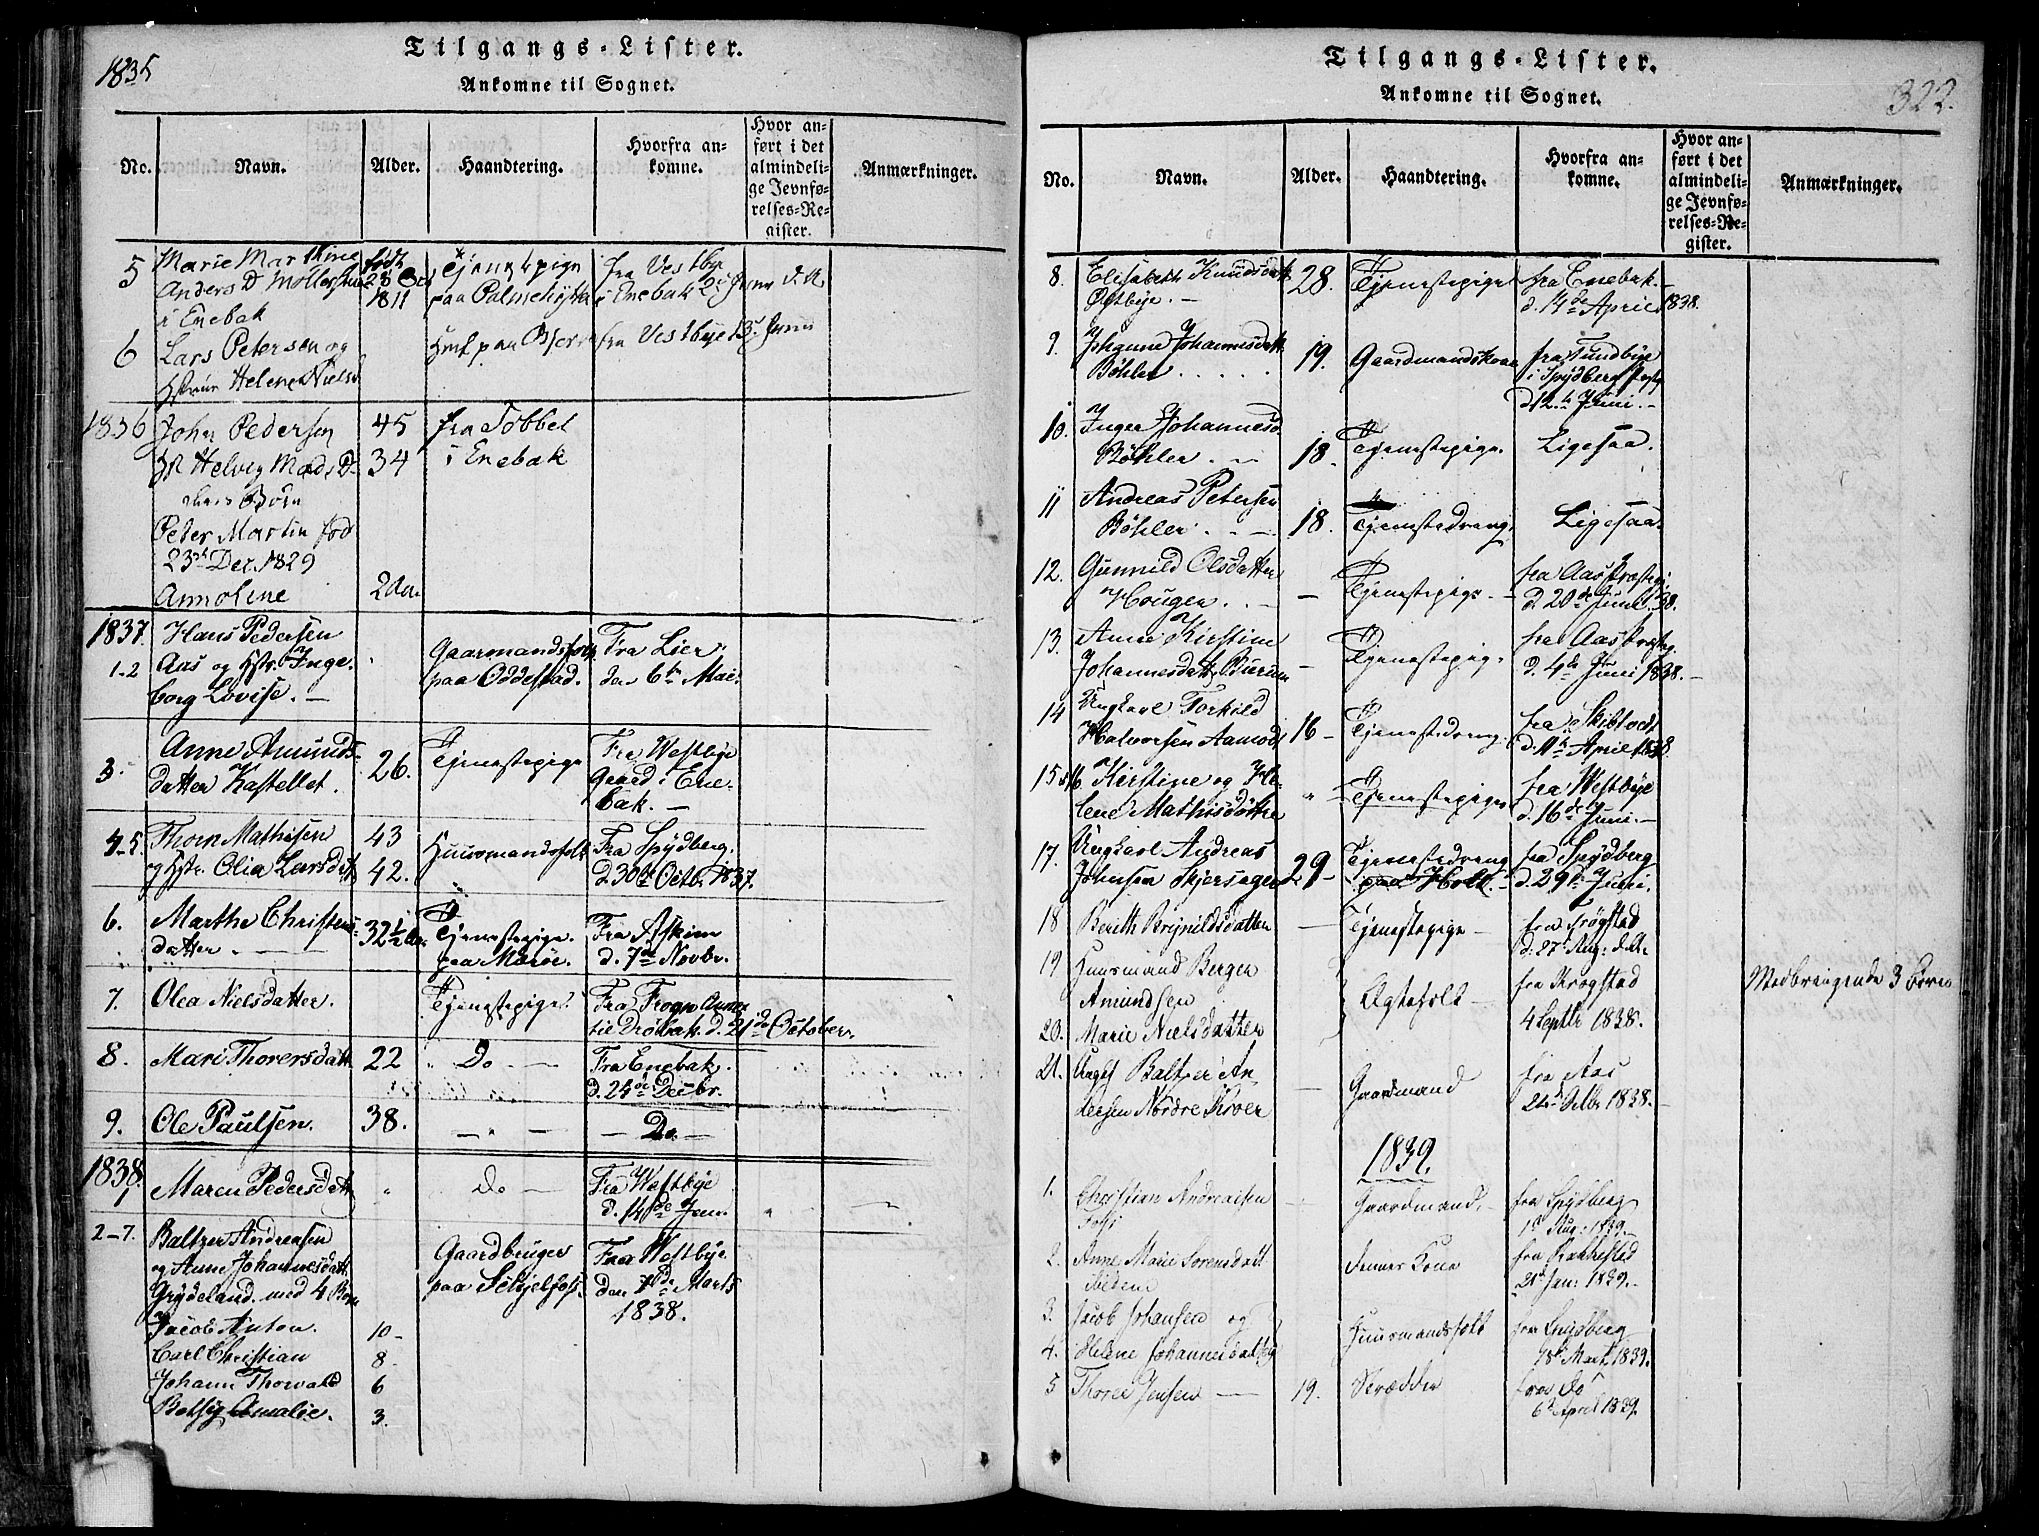 1835
Tilgangs-Lister.
Ankomne til Sognet.
No.
Navn.
Alder.
Haandtering.
Hvorfra an-
komne.
Hvor an-
ført i det
almindeli-
ge Jevnfø-
relses-Re-
gister.
Anmærkninger.
5
Marie Marthine
Anders D
i Enebak
født
1811
Tjenestpige
paa
fra Vestbye
i Enebak 2
6
Lars Petersen og
Helene Niels
paa
fra Vestbye 13
1836
John Pedersen
45
fra Tobbel
Helvig Mads D
34
i Enebak
Børn
Peter Martin fød
23 Dec. 1829
Annolene
2
1837.
1-2
Hans Pedersen
Aas og Hstr. Inge-
borg Lovise. —
Gaarmandsfolk
paa Oddestad.
Fra Lier
den 6te Mai.
3.
Anne Amunds-
datter Kastellet.
26.
Tjenestepige
Fra Westbye
Gaard i Ene-
bak. —
4-5.
Thorn Mathisen
og Hstr. Olia Larsdatt
43
42.
Huusmandsfolk
Fra Spydberg.
d. 30te Octbr. 1837.
6.
Marthe Christens-
datter.
32½
Tjenestepige
paa Morøe.
Fra Askim
d. 7de Novbr.
7.
Olea Nielsdatter.
Tjenestepige
Fra Frogn
til Drøbak. d. 21de October.
8.
Mari Thorersdatt
22
Do —
Fra Enebak.
d. 24de Decbr.
9.
Ole Paulsen.
38.
— " —
— Do —
1838.
1
Maren Pedersdatt
"
Do —
Fra Westbye
d. 14de Jan.
2-7.
Baltzer Andreasen
og Anne Johannesdatt
Grydeland. med 4 Børn
Gaardbruger
paa
Fra Westbye
den 7de Marts
1838.
Jacob Anton.
10-
Carl Christian
8-
Johann Thorvald
6
Betsy Amalie.
3.
Tilgangs-Lister.
Ankomne til Sognet.
322.
No.
Navn.
Alder.
Haandtering.
Hvorfra an-
komne.
Hvor an-
ført i det
almindeli-
ge Jevnfø-
relses-Re-
gister.
Anmærkninger.
8.
Elisabeth Knudsdatt
Østbye. —
28.
Tjenestepige
fra Enebak. —
d. 14de April 1838.
9.
Johannesdatt
Bøhler . . . . .
19.
Gaardmandskone
fra Tundbye
i Spydberg
d. 12te Juni. —
10.
Inger Johannesd.
Bøhler. . —
18.
Tjenestepige.
Ligesaa.
11
Andreas Petersen
Bøhler. . . —
18.
Tjenestedreng.
Ligesaa.
12.
Gunnild Olsdatter
Hougen. . —
—
Tjenestepige. —
fra Aas Præsteg.
d. 20de Juni. 38.
13.
Anne Kirstine
Johannesdatt. Burum
—
Tjenestepige.
fra Aas Præsteg
d. 4de Juni 1838. —
14
Ungkarl Torkild
Halvorsen Aamodt
16 —
Tjenestedreng.
fra Skibtvedt
d. 11te April 1838.
15 & 16.
Kirstine og He-
lene Mathisdøttre
"
Tjenestepiger
fra Westbye
d. 16de Juni. —
17.
Ungkarl Andreas
Johnsen
29 —
Tjenestedreng
paa Holt. —
fra Spydberg
d. 29de Juni.
18
Berith Brynildsdatter
—
Tjenestepige —
fra Trøgstad
d. 27 Aug: d. A.
19
Huusmand Berger
Amundsen
Ægtefolk —
fra Krogstad
4 Septbr 1838.
Medbringende 3 Børn
20.
Marie Nielsdatter
21.
Ungk Baltzer An-
dersen Nordre Kroer
—
Gaardmand
fra Aas
1838. —
1839.
1.
Christian Andreasen
—
Gaardmand. —
fra Spydberg
1 Aug: 1839
2.
Anne Marie Sorensdatt
ibidem
dennes Kone
fra Rakkestad
21 Jan: 1839. —
3.
Jacob Johansen og
Huusmandsfolk
fra Spydberg
18 Mart. 1839.
4.
Helene Johannesdatter
5
Thorer Jensen —
19.
Skrædder
fra do
6 April 1839.